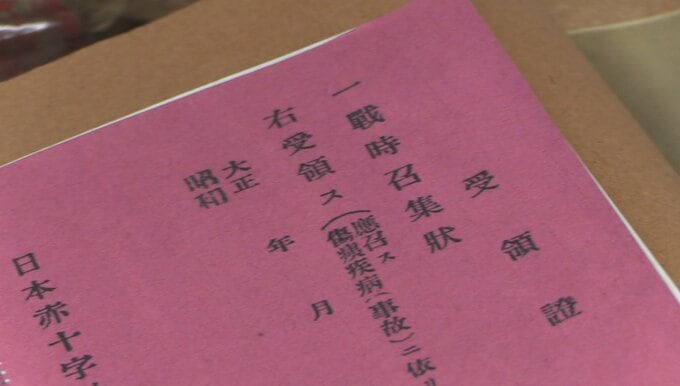 受領證
一戰時召集狀
右受領ス(應召ス
傷痍疾病(事故)ニ依リ
大正
昭和
年月
日本赤十字